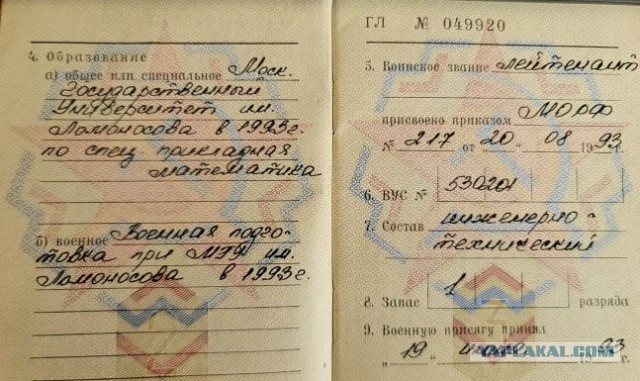 4. Образование
а) общее или специальное Моск.
Государственный
Университет им.
Ломоносова в 1993г.
по спец. прикладная
математика
б) военное Военная подго-
товка при МГУ им.
Ломоносова в 1993г.
ГЛ № 049920
5. Воинское звание лейтенант
присвоено приказом МО РФ
№ 217 от „20" 08 1993г.
6. ВУС № 530201
7. Состав инженерно-
технический
8. Запас 1 разряда
9. Военную присягу принял
„19" 1993
YAPLAKAL.COM